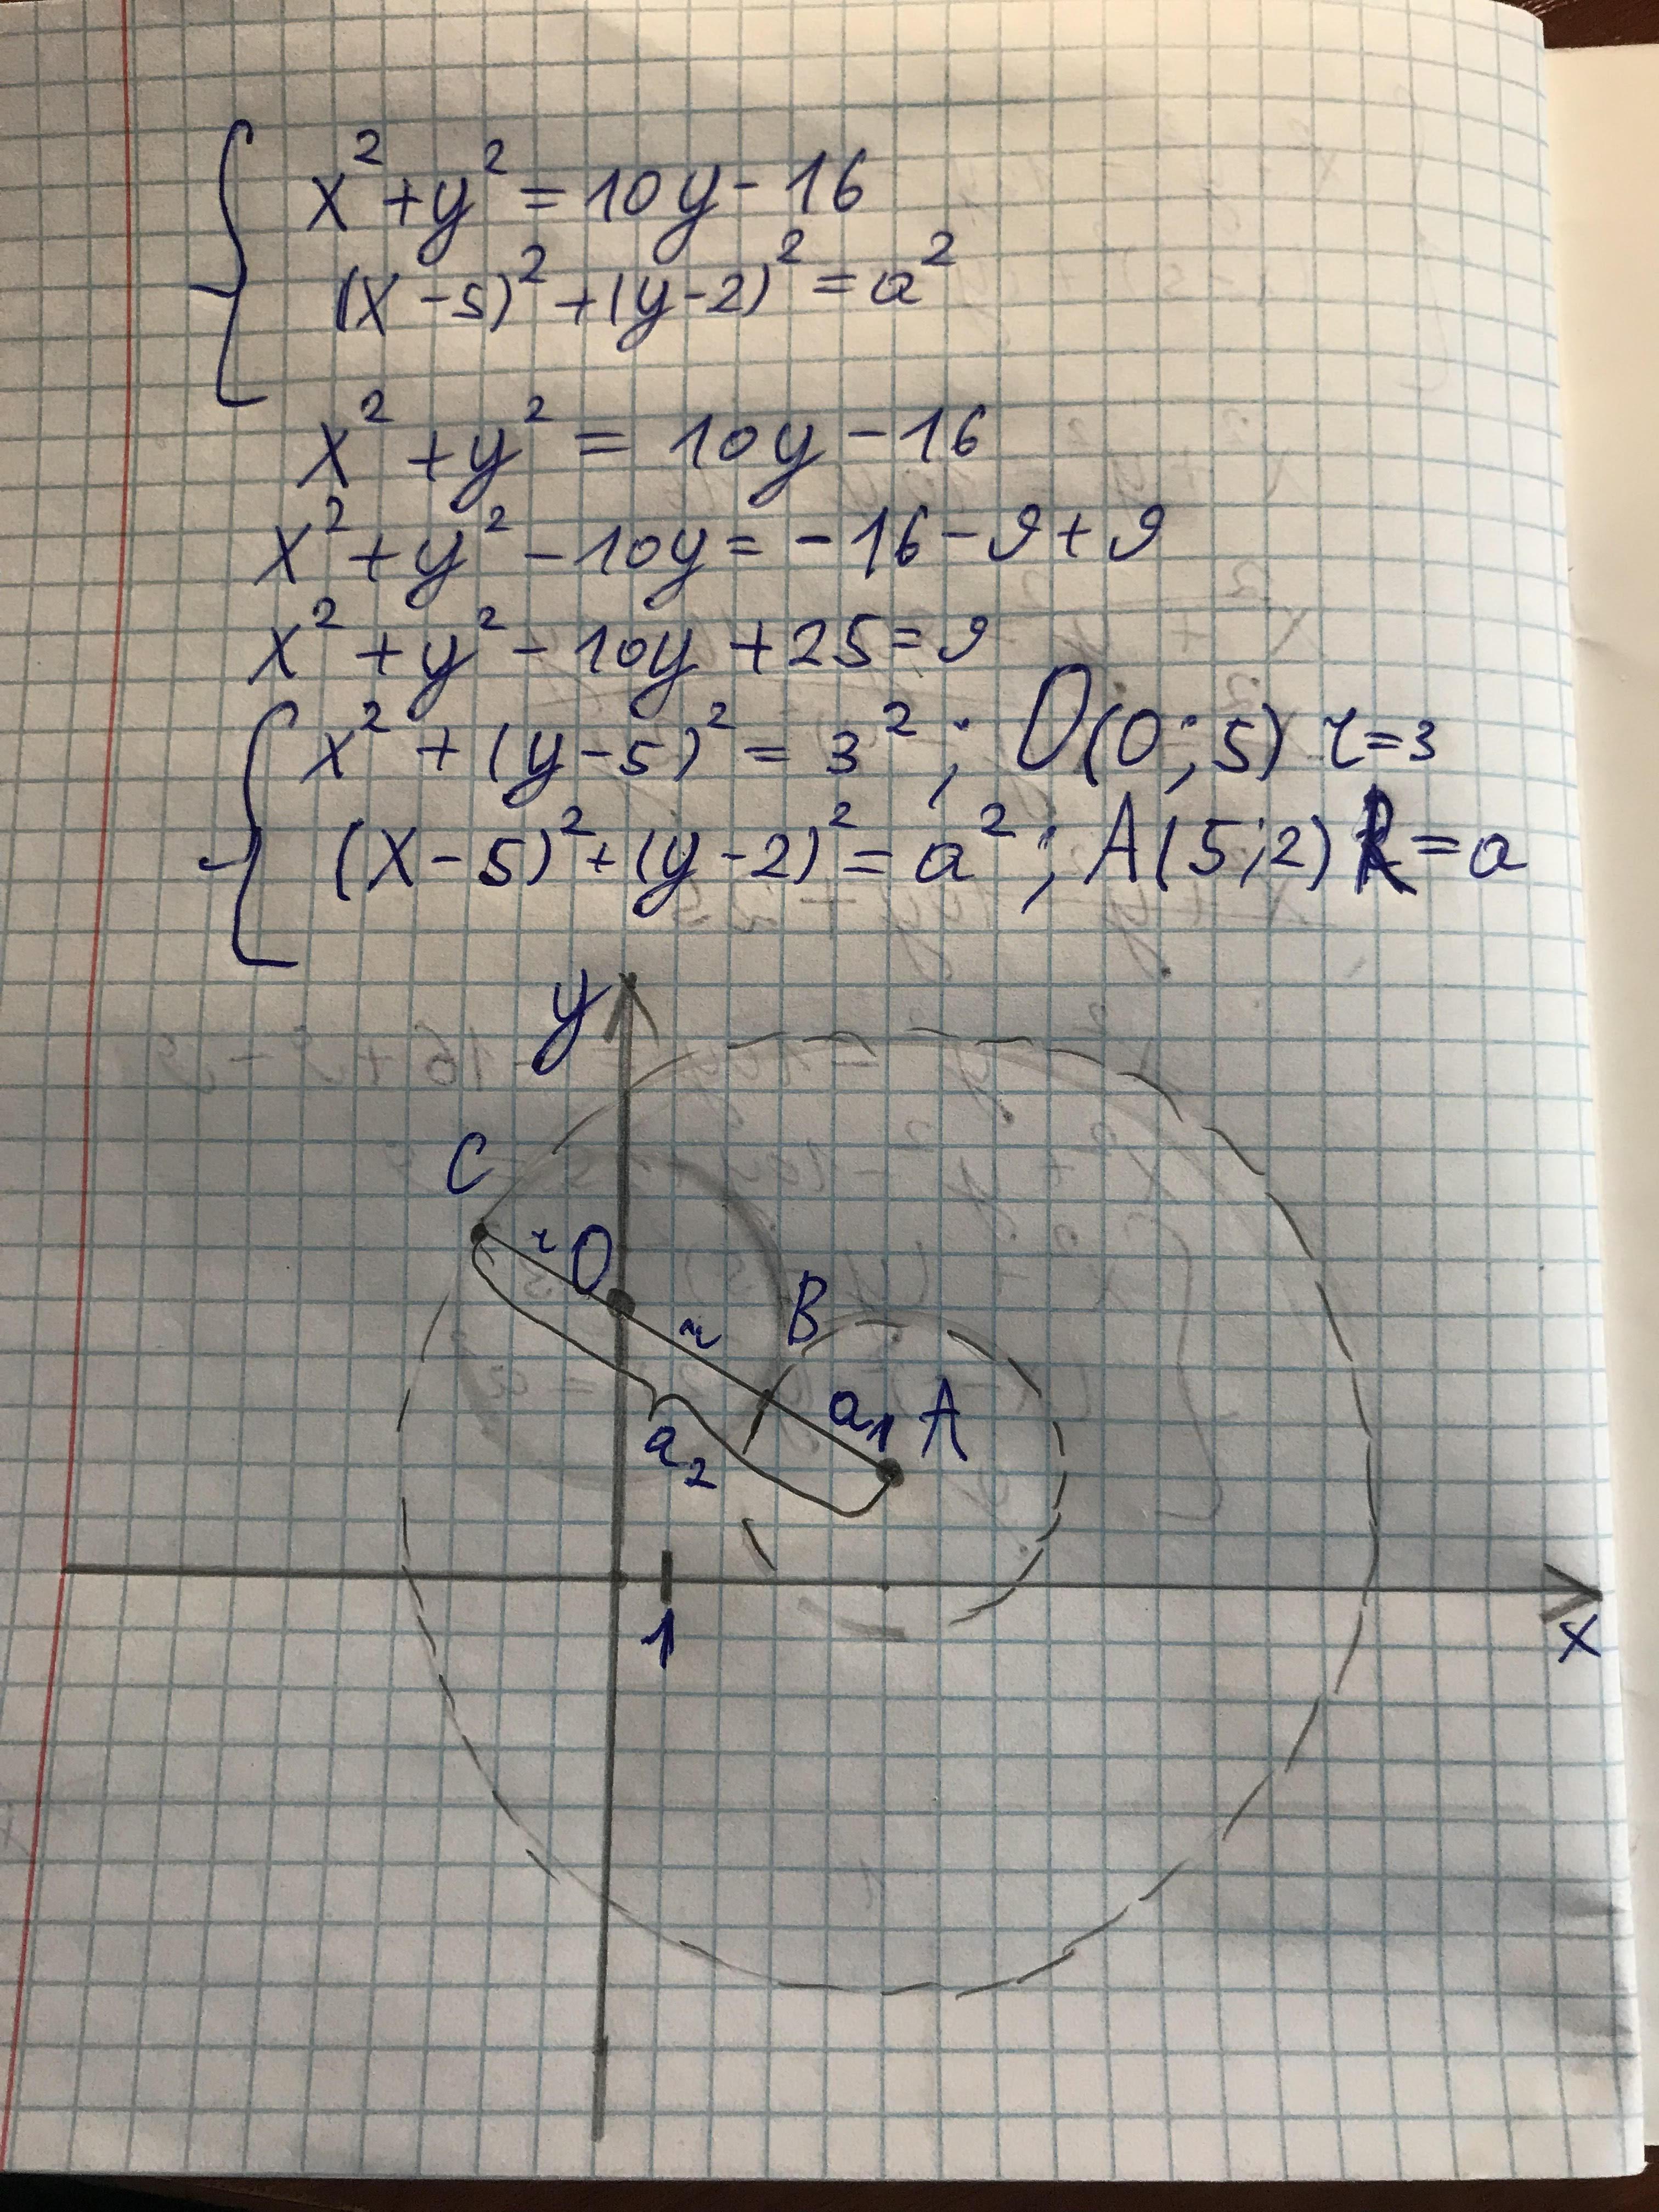 x² + y² = 10y - 16
(x - 5)² + (y - 2)² = a²
x² + y² = 10y - 16
x² + y² - 10y = -16 - 9 + 9
x² + y² - 10y + 25 = 9
x² + (y - 5)² = 3² ; O(0;5) r = 3
(x - 5)² + (y - 2)² = a² ; A(5;2) R = a
y
C
r O
r B
a₁ A
a₂
1
x